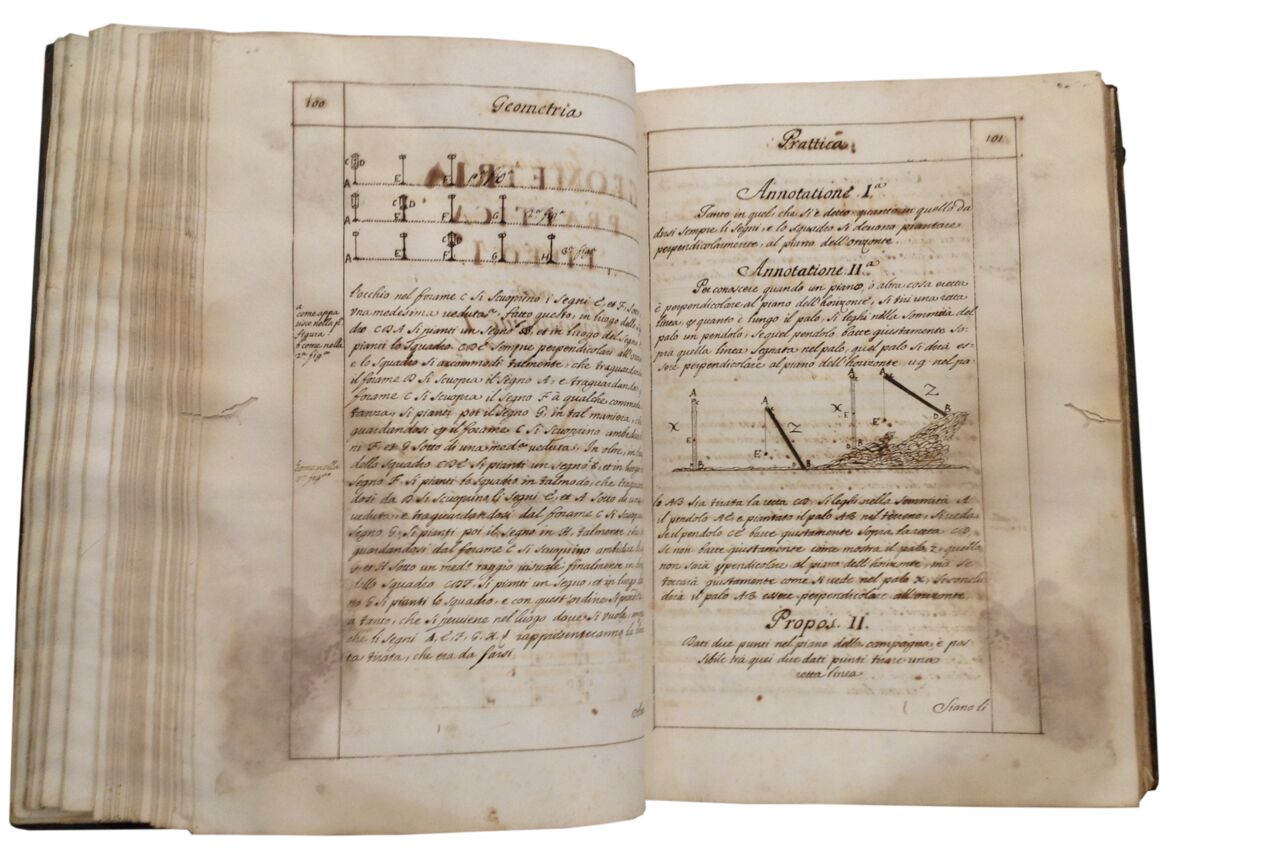 100
Geometria
C D
A E F pª figª
C D
A E F G 2ª figª
C D
A E F G H 3ª figª
l'occhio nel forame C si scuoprino i segni E, et F, sotto
una medesima veduta. fatto questo, in luogo dello
dro CDA si pianti un segno, et in luogo del segno
pianti lo squadro CDE sempre perpendicolare all'
e lo squadro si accommodi talmente, che traguardando
il forame D si scuopra il segno A, e traguardando
forame C si scuopra il segno F à qualche commoda
tanza, si pianti poi il segno G, in tal maniera, che
guardandosi il forame C si scuoprino ambidui
ni F, et G sotto di una medª veduta. In oltre, in
dello squadro CDE si pianti un segno E, et in luogo
segno F si pianti lo squadro in talmodo, che traguar
dosi da D si scuoprino li segni E, et A sotto di una
veduta, e traguardandosi dal forame C si scuopra
segno G, si pianti poi il segno in H, talmente che
guardandosi dal forame C si scuoprino ambidui li
G et H sotto un medº raggio visuale, finalmente in
dello squadro CDF, si pianti un segno, et in luogo
no G si pianti lo squadro, e con quest'ordine si
a tanto, che si perviene nel luogo dove si vuole,
che li segni A, E, F, G, H, rappresenteranno la
ta tirata, che era da farsi.
a
come appa
risce nella pª
figura
ò come nella
2ª figª
Come nella
3ª figª
Prattica
101
Annotatione Iª
Tanto in quel, che si è detto quanto in quello da
dirsi sempre li segni, e lo squadro si devono piantare
perpendicolarmente, al piano dell'orizonte.
Annotatione IIª
Per conoscere quando un piano, ò altra cosa eretta
è perpendicolare al piano dell'horizonte, si tiri una retta
linea, quanto è lungo il palo, si leghi nella sommità del
palo un pendolo, se quel pendolo batte giustamente so-
pra quella linea segnata nel palo, quel palo si dirà es-
sere perpendicolare al piano dell'horizonte. u.g. nel pa-
A A A A
X E Z X E Z
D B D B D B D B
lo AB sia tirata la retta CD, si leghi nella sommità A
il pendolo AE, e piantato il palo AB nel terreno, si veda
se il pendolo CE batte giustamente sopra la retta CD,
se non batte giustamente come mostra il palo Z, quello
non sarà perpendicolare al piano dell'horizonte, ma se
toccarà giustamente come si vede nel palo X, si conclu
derà il palo AB essere perpendicolare all'orizonte.
Propos. II.
Dati due punti nel piano della campagna, è pos
sibile trà quei due dati punti tirare una
retta linea
Siano li